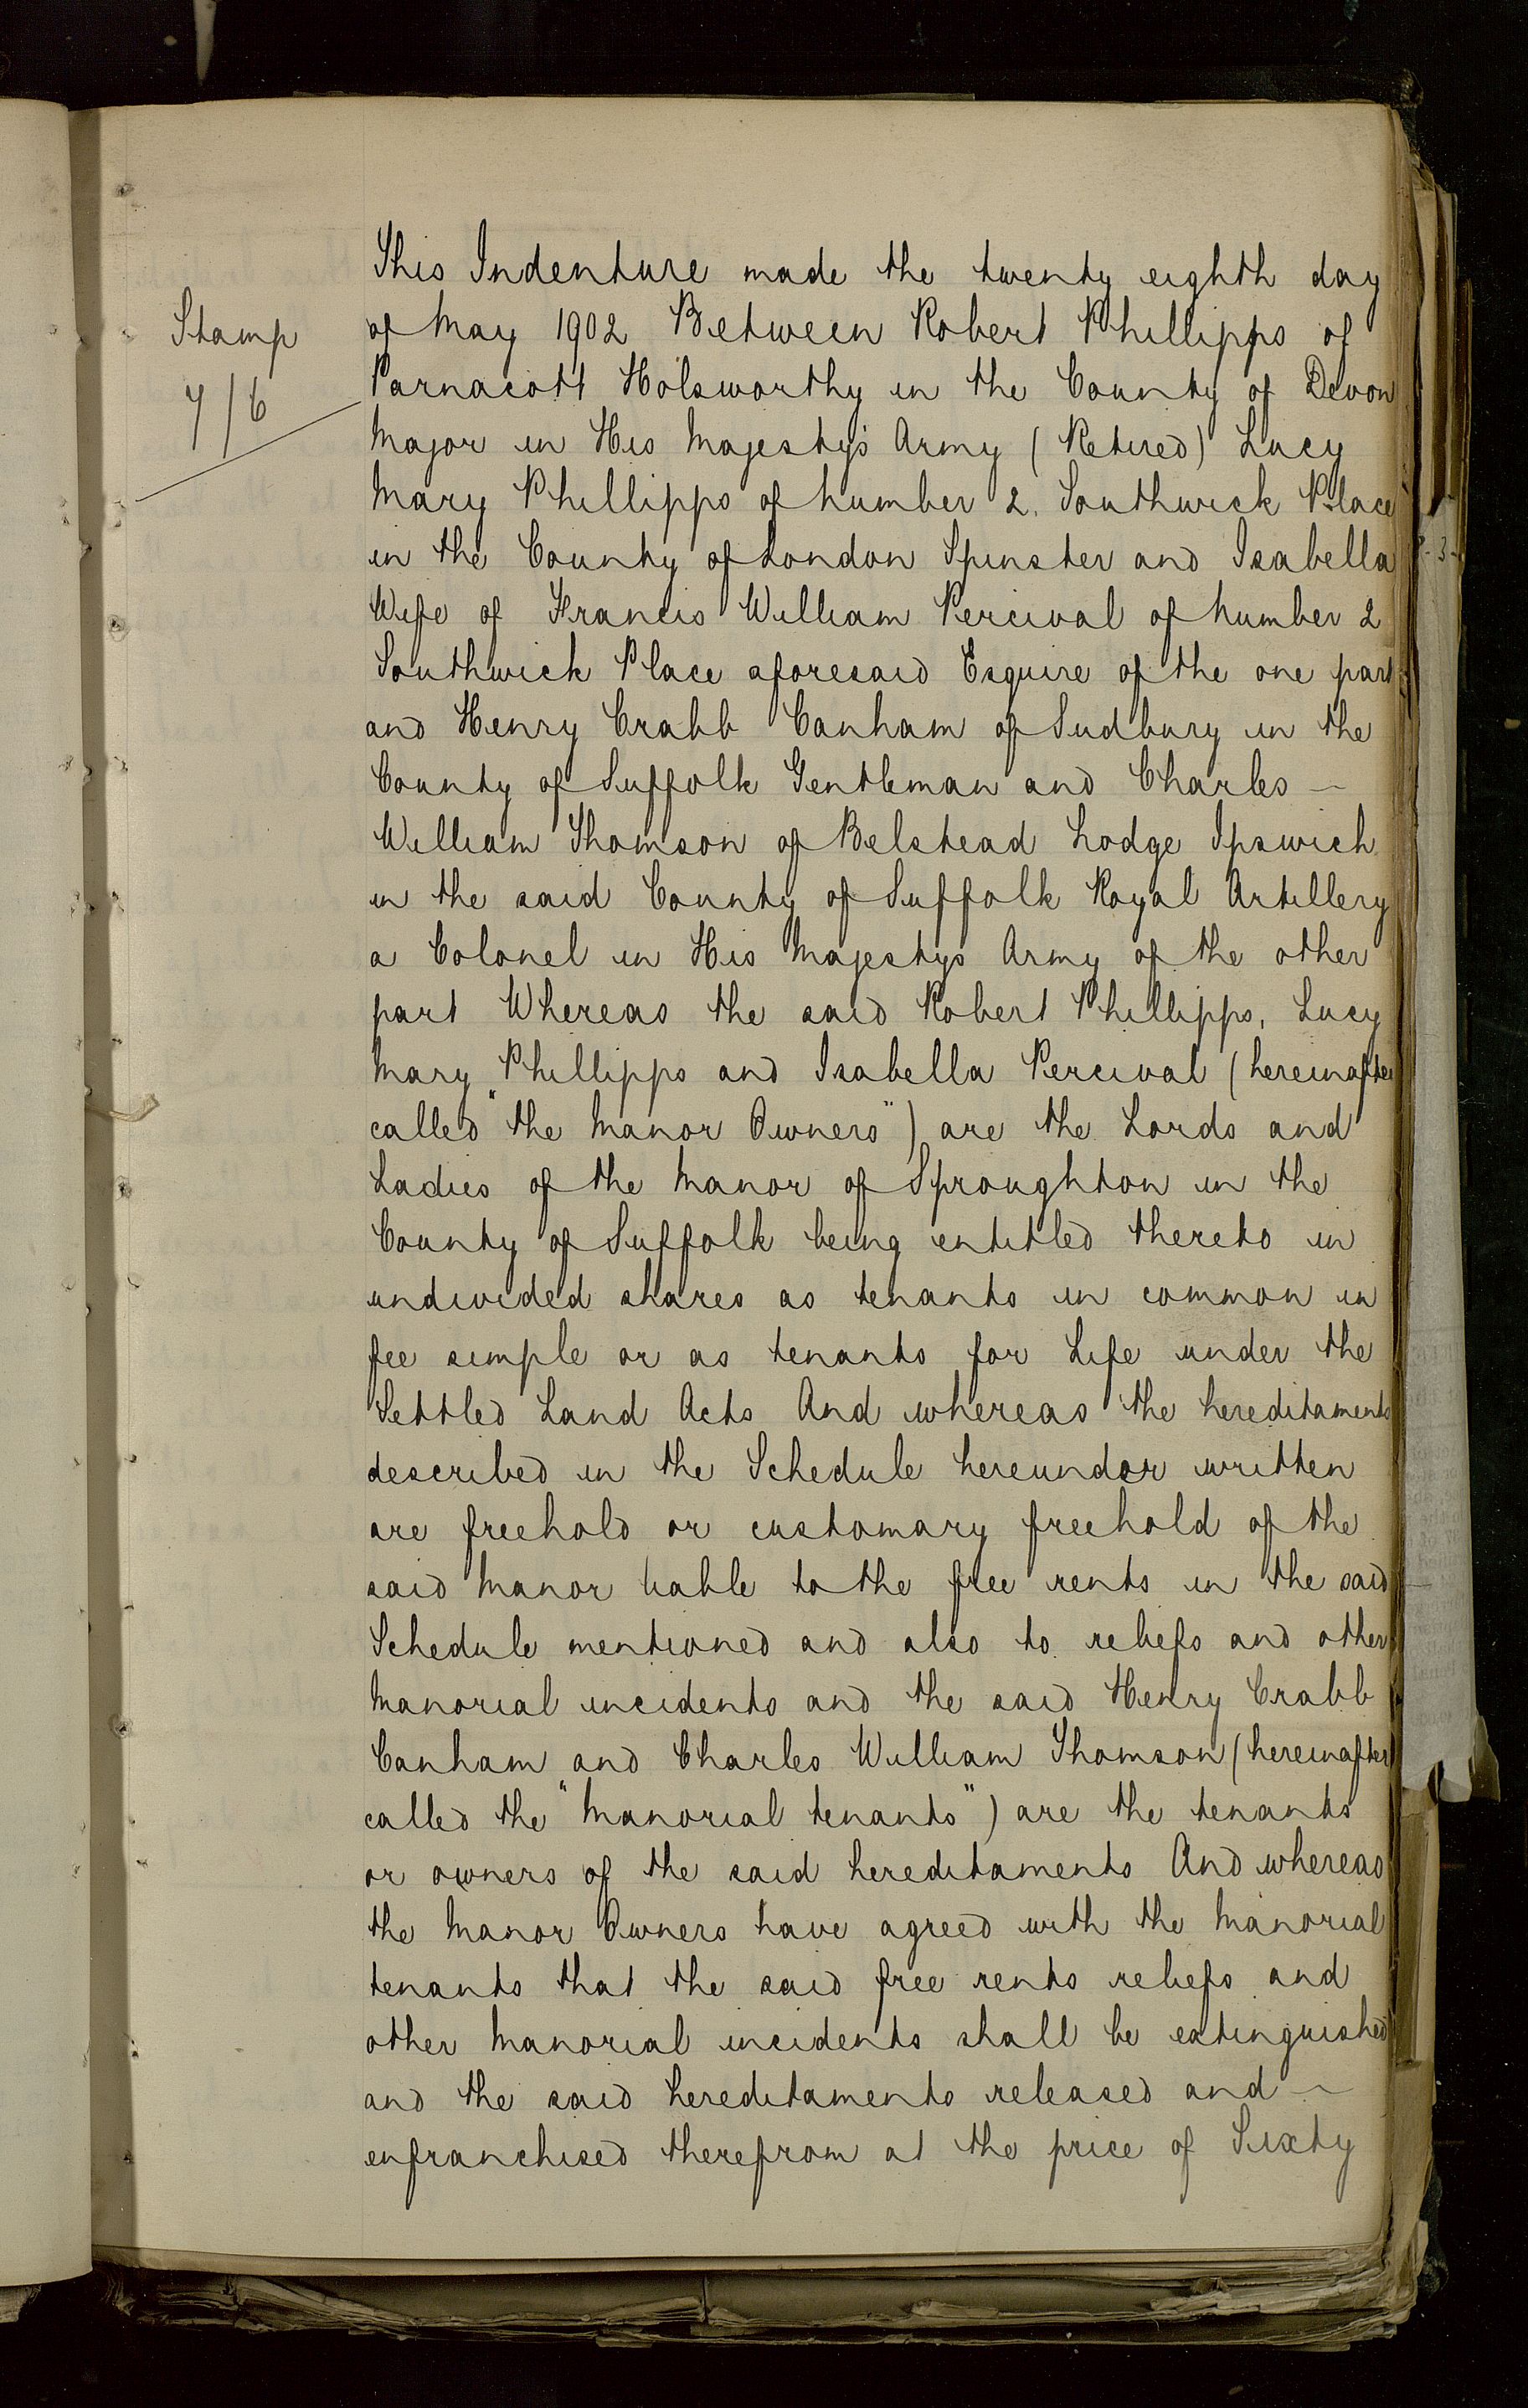 This Indenture made the twenty eighth day
Stamp
7/6
of May 1902 Between Robert Phillipps of
Parnacott Holsworthy in the County of Devon
Major in His Majesty's Army (Retired) Lucy
Mary Phillipps of Number 2. Southwick Place
in the County of London Spinster and Isabella
Wife of Francis William Percival of Number 2
Southwick Place aforesaid Esquire of the one part
and Henry Crabb Canham of Sudbury in the
County of Suffolk Gentleman and Charles ~
William Thomson of Belstead Lodge Ipswich
in the said County of Suffolk Royal Artillery
a Colonel in His Majestys Army of the other
part Whereas the said Robert Phillipps, Lucy
Mary Phillipps and Isabella Percival (hereinafter
called "the Manor Owners") are the Lords and
Ladies of the Manor of Sproughton in the
County of Suffolk being entitled thereto in
undivided shares as tenants in common in
fee simple or as tenants for Life under the
Settled Land Acts And whereas the hereditaments
described in the Schedule hereunder written
are freehold or customary freehold of the
said Manor liable to the free rents in the said
Schedule mentioned and also to reliefs and other
Manorial incidents and the said Henry Crabb
Canham and Charles William Thomson (hereinafter
called the "Manorial tenants") are the tenants
or owners of the said hereditaments And whereas
the Manor Owners have agreed with the Manorial
tenants that the said free rents reliefs and
other Manorial incidents shall be extinguished
and the said hereditaments released and ~
enfranchised therefrom at the price of Sixty